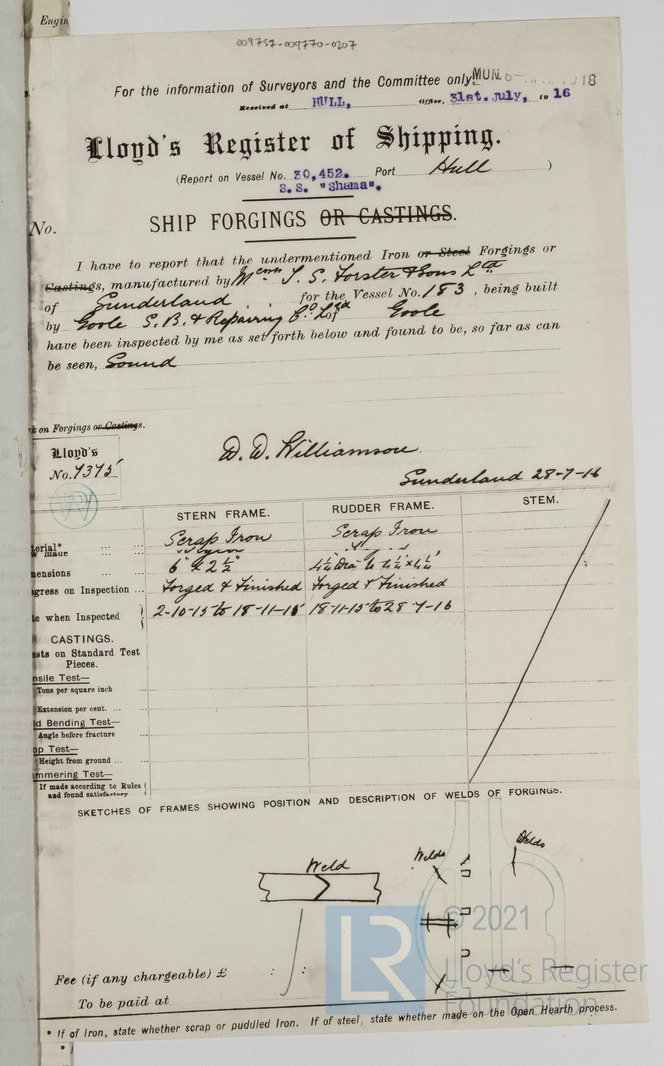 Engin
009752-009770-0207
For the information of Surveyors and the Committee only.
MON. 8
18
Received at HULL, Office, 31st. July, 1916
Lloyd's Register of Shipping.
(Report on Vessel No. 30,452. Port Hull )
S.S. "Shama".
No.
SHIP FORGINGS OR CASTINGS.
I have to report that the undermentioned Iron or Steel Forgings or
Castings, manufactured by Messrs T. S. Forster & Sons Ltd
of Sunderland for the Vessel No. 183, being built
by Goole S. B. & Repairing Co. Ltd of Goole
have been inspected by me as set forth below and found to be, so far as can
be seen, Sound
k on Forgings or Castings.
Lloyd's
No. 7375
D. D. Williamson
Sunderland 28-7-16
STERN FRAME. RUDDER FRAME. STEM.
erial* Scrap Iron Scrap Iron
w made
ensions 6" x 2½" 4¼" Dia to 4½" x 4¼"
gress on Inspection Forged & Finished Forged & Finished
te when Inspected 2-10-15 to 18-11-15 18-11-15 to 28-7-16
CASTINGS.
sts on Standard Test
Pieces.
nsile Test—
Tons per square inch
Extension per cent.
d Bending Test—
Angle before fracture
op Test—
Height from ground
mmering Test—
If made according to Rules
and found satisfactory
SKETCHES OF FRAMES SHOWING POSITION AND DESCRIPTION OF WELDS OF FORGINGS.
Weld
Welds
Welds
LR
© 2021
Lloyd's Register
Foundation
Fee (if any chargeable) £ : :
To be paid at
* If of Iron, state whether scrap or puddled Iron. If of steel, state whether made on the Open Hearth process.